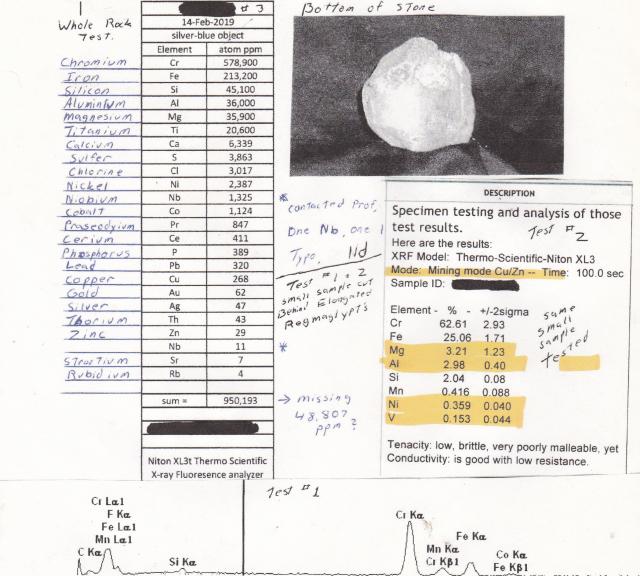 # 3
Whole Rock
Test.
14-Feb-2019
silver-blue object
Element atom ppm
Chromium Cr 578,900
Iron Fe 213,200
Silicon Si 45,100
Aluminium Al 36,000
Magnesium Mg 35,900
Titanium Ti 20,600
Calcium Ca 6,339
Sulfer S 3,863
Chlorine Cl 3,017
Nickel Ni 2,387
Niobium Nb 1,325 *
Cobalt Co 1,124
Praseodyium Pr 847
Cerium Ce 411
Phosphorus P 389
Lead Pb 320
Copper Cu 268
Gold Au 62
Silver Ag 47
Thorium Th 43
Zinc Zn 29
Nb 11 *
Strotium Sr 7
Rubidium Rb 4
sum = 950,193
→ missing
48,807
ppm ?
Niton XL3t Thermo Scientific
X-ray Fluoresence analyzer
Bottom of stone
contacted Prof,
One Nb, one
Typo.
Test # 1 + 2
small sample cut
Behind Elongated
Regmaglypts
DESCRIPTION
Specimen testing and analysis of those
test results.
Test # 2
Here are the results:
XRF Model: Thermo-Scientific-Niton XL3
Mode: Mining mode Cu/Zn -- Time: 100.0 sec
Sample ID:
Element - % - +/-2sigma
Cr 62.61 2.93
Fe 25.06 1.71
Mg 3.21 1.23
Al 2.98 0.40
Si 2.04 0.08
Mn 0.416 0.088
Ni 0.359 0.040
V 0.153 0.044
same
small
sample
tested
Tenacity: low, brittle, very poorly malleable, yet
Conductivity: is good with low resistance.
Test # 1
Cr Lα1
F Kα
Fe Lα1
Mn Lα1
C Kα
Si Kα
Cr Kα
Mn Kα
Cr Kβ1
Fe Kα
Co Kα
Fe Kβ1